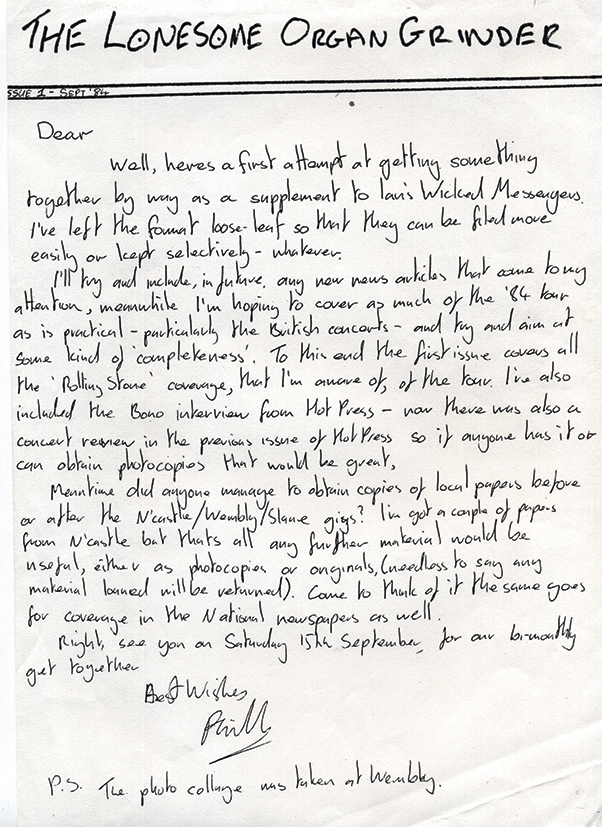 THE LONESOME ORGAN GRINDER
ISSUE 1 - SEPT '84
Dear
Well, heres a first attempt at getting something
together by way as a supplement to Ian's Wicked Messengers.
I've left the format loose-leaf so that they can be filed more
easily or kept selectively - whatever.
I'll try and include, in future, any new news articles that come to my
attention, meanwhile I'm hoping to cover as much of the '84 tour
as is practical - particularly the British concerts - and try and aim at
some kind of 'completeness'. To this end the first issue covers all
the 'Rolling Stone' coverage, that I'm aware of, of the tour. I've also
included the Bono interview from Hot Press - now there was also a
concert review in the previous issue of Hot Press so if anyone has it or
can obtain photocopies that would be great.
Meantime did anyone manage to obtain copies of local papers before
or after the N'castle/Wembly/Slane gigs? I've got a couple of papers
from N'castle but thats all any further material would be
useful, either as photocopies or originals, (needless to say any
material loaned will be returned). Come to think of it the same goes
for coverage in the National newspapers as well.
Right, see you on Saturday 15th September, for our bi-monthly
get together
Best Wishes
P.S. The photo collage was taken at Wembly.